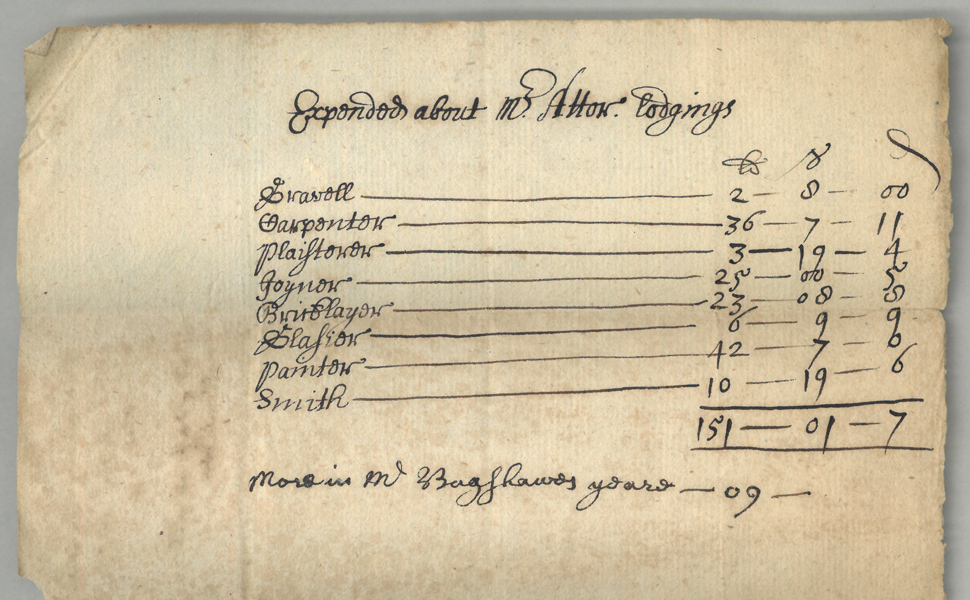 Expended about Mr. Attor: lodgings
lb s d
Gravell — 2 — 8 — 00
Carpenter — 36 — 7 — 11
Plaisterer — 3 — 19 — 4
Joyner — 25 — 00 — 5
Bricklayer — 23 — 08 — 8
Glasier — 6 — 9 — 9
Painter — 42 — 7 — 0
Smith — 10 — 19 — 6
151 — 01 — 7
More in Mr Bagshawes yeare — 09 —